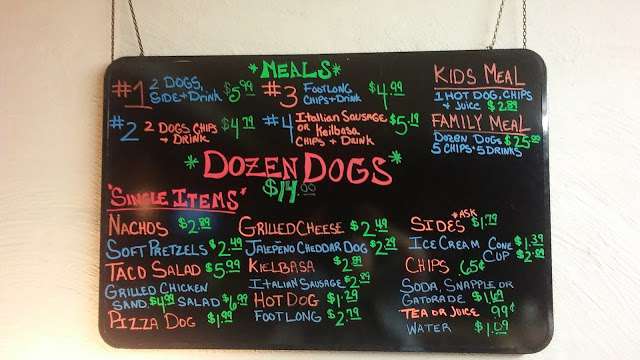 *MEALS*
#1 2 DOGS, SIDE + DRINK $5.99
#3 FOOTLONG CHIPS + DRINK $4.99
#2 2 DOGS CHIPS + DRINK $4.79
#4 ITALIAN SAUSAGE OR KEILBASA CHIPS + DRINK $5.19
KIDS MEAL
1 HOT DOG, CHIPS
& JUICE $2.89
FAMILY MEAL
DOZEN DOGS $25.00
5 CHIPS + 5 DRINKS
*DOZEN DOGS*
$14.00
*SINGLE ITEMS*
NACHOS $2.89
SOFT PRETZELS $2.49
TACO SALAD $5.99
GRILLED CHICKEN
SAND. $4.99 SALAD $6.99
PIZZA DOG $1.99
GRILLED CHEESE $2.49
JALEPEÑO CHEDDAR DOG $2.29
KIELBASA $2.89
ITALIAN SAUSAGE $2.89
HOT DOG $1.29
FOOT LONG $2.79
SIDES *ASK $1.79
ICE CREAM CONE $1.39
CUP $2.89
CHIPS 65¢
SODA, SNAPPLE OR
GATORADE $1.69
TEA OR JUICE 99¢
WATER $1.09